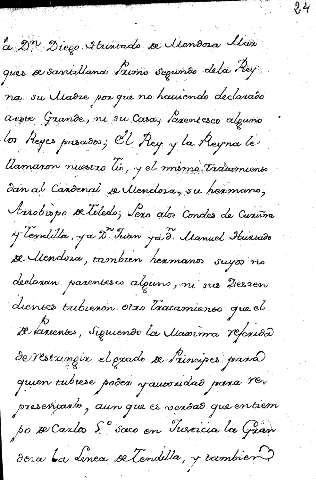 24
à Dⁿ Diego Hurtado de Mendoza Mar
ques de santillana Primo segundo dela Rey
na su Madre por que no haviendo declarado
aesta Grande, ni su Casa, Parentesco alguno
los Reyes pasados; El Rey y la Reyna le
llamaron nuestro Tio, y el mismo tratamiento
dan al Cardenal de Mendoza, su hermano,
Arzobispo de Toledo; Pero alos Condes de Coruña
y Tendilla, ya Dⁿ Juan ya Dⁿ Manuel Hurtado
de Mendoza, tambien hermanos suyos no
declaran parentesco alguno, ni sus Descen
dientes tubieron otro tratamiento que el
de Parientes, siguiendo la Maxima referida
de restringir el grado de Principes para
quien tubiese poder y autoridad para re
presentarlo, aun que es verdad que entiem
po de Carlos 5.º saco en Justicia la Gran
deza la Linea de Tendilla, y tambien